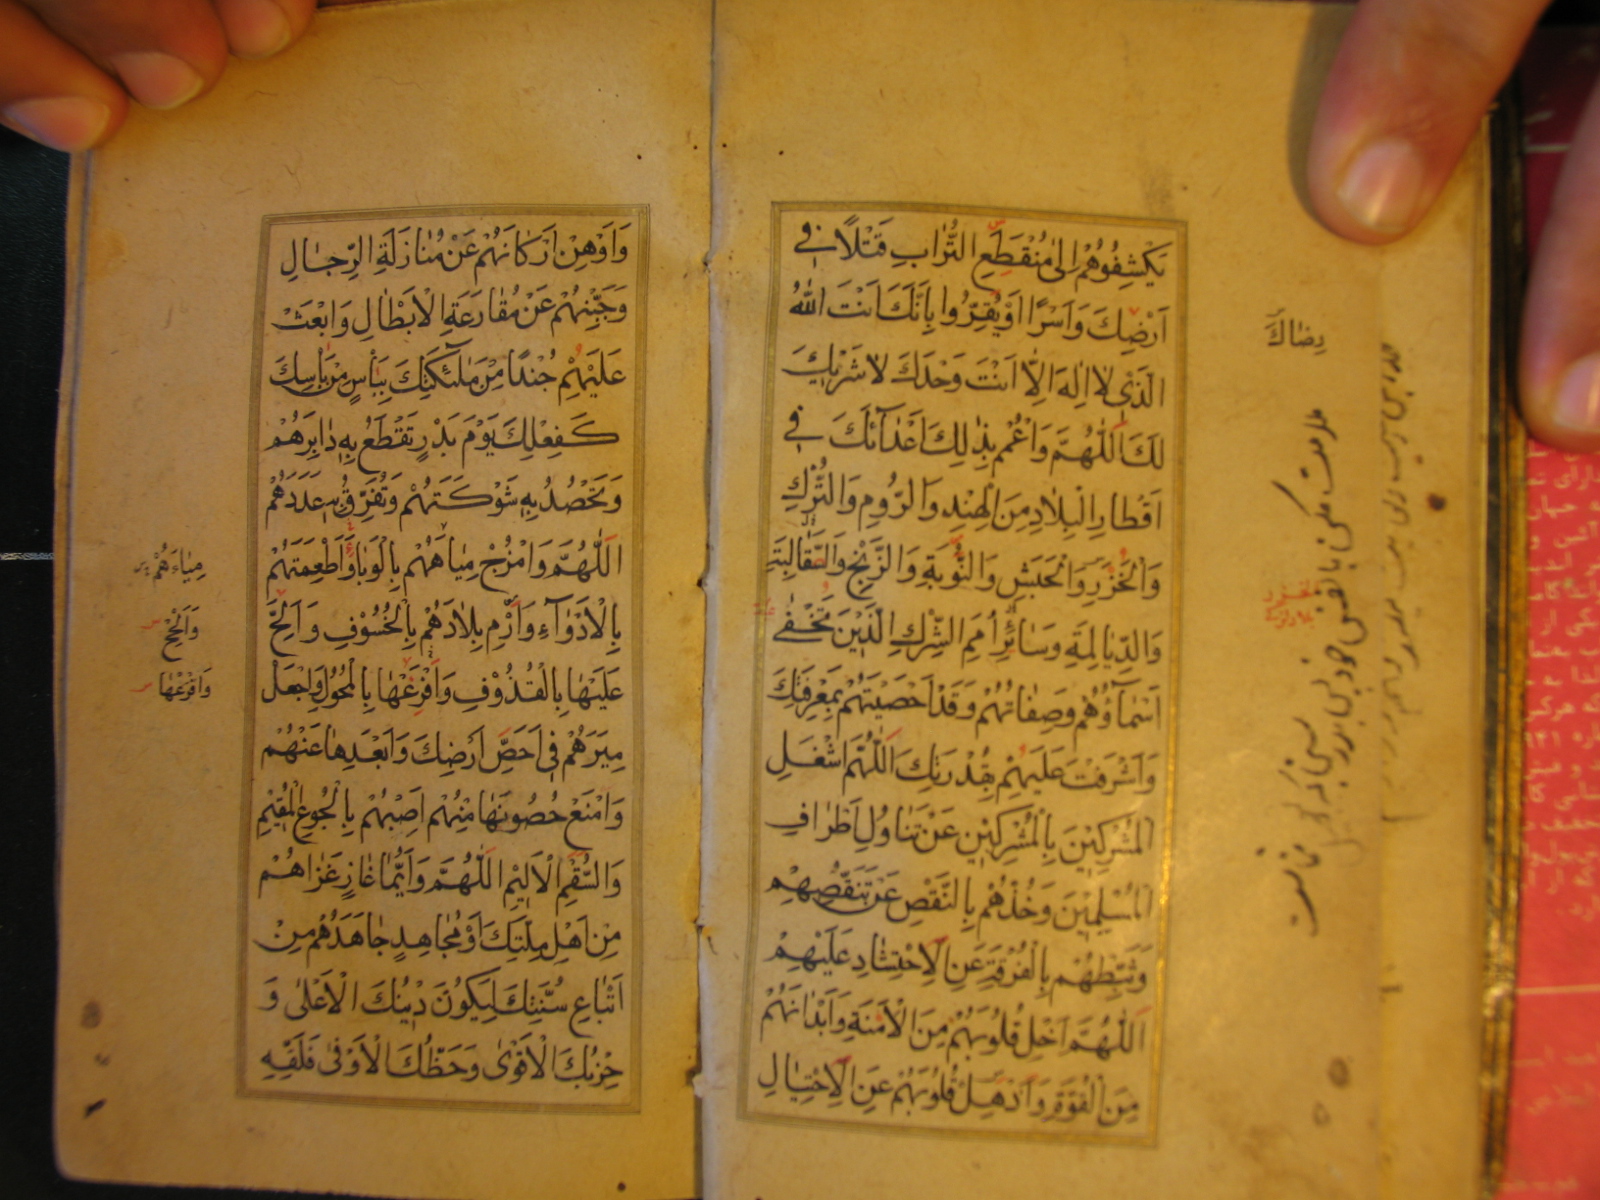 يَكْشِفُوهُمْ اِلىٰ مُنْقَطَعِ التُّرٰابِ قَتْلًا فى
اَرْضِكَ وَاَسْرًا اَوْ يُقِرُّوا بِاَنَّكَ اَنْتَ اللّٰهُ
الَّذى لٰا اِلٰهَ اِلّٰا اَنْتَ وَحْدَكَ لٰا شَريكَ
لَكَ اَللّٰهُمَّ وَاعْمُمْ بِذٰلِكَ اَعْدٰآئَكَ فى
اَقْطٰارِ الْبِلٰادِ مِنَ الْهِنْدِ وَالرُّومِ وَالتُّرْكِ
وَالْخَزَرِ وَالْحَبَشِ وَالنُّوبَةِ وَالزَّنْجِ وَالسَّقٰالِبَةِ
وَالدَّيٰالِمَةِ وَسٰائِرِ اُمَمِ الشِّرْكِ الَّذينَ تَخْفٰى
اَسْمٰآؤُهُمْ وَصِفٰاتُهُمْ وَقَدْ اَحْصَيْتَهُمْ بِمَعْرِفَتِكَ
وَاَشْرَفْتَ عَلَيْهِمْ بِقُدْرَتِكَ اَللّٰهُمَّ اشْغَلِ
الْمُشْرِكينَ بِالْمُشْرِكينَ عَنْ تَنٰاوُلِ اَطْرٰافِ
الْمُسْلِمينَ وَخُذْهُمْ بِالنَّقْصِ عَنْ تَنَقُّصِهِمْ
وَثَبِّطْهُمْ بِالْفُرْقَةِ عَنِ الْاِحْتِشٰادِ عَلَيْهِمْ
اَللّٰهُمَّ اَخْلِ قُلُوبَهُمْ مِنَ الْاَمَنَةِ وَاَبْدٰانَهُمْ
مِنَ الْقُوَّةِ وَاَذْهِلْ قُلُوبَهُمْ عَنِ الْاِحْتِيٰالِ
رِضٰاكَ
ملامت مكن
وَاَوْهِنْ اَرْكٰانَهُمْ عَنْ مُنٰازَلَةِ الرِّجٰالِ
وَجَبِّنْهُمْ عَنْ مُقٰارَعَةِ الْاَبْطٰالِ وَابْعَثْ
عَلَيْهِمْ جُنْدًا مِنْ مَلٰآئِكَتِكَ بِبَأْسٍ مِنْ بَأْسِكَ
كَفِعْلِكَ يَوْمَ بَدْرٍ تَقْطَعُ بِهِ دٰابِرَهُمْ
وَتَحْصُدُ بِهِ شَوْكَتَهُمْ وَتُفَرِّقُ بِهِ عَدَدَهُمْ
اَللّٰهُمَّ وَامْزُجْ مِيٰاهَهُمْ بِالْوَبٰاءِ وَاَطْعِمَتَهُمْ
بِالْاَدْوٰآءِ وَارْمِ بِلٰادَهُمْ بِالْخُسُوفِ وَاَلِحَّ
عَلَيْهٰا بِالْقُذُوفِ وَافْرَعْهٰا بِالْمُحُولِ وَاجْعَلْ
مِيَرَهُمْ فى اَحَصِّ اَرْضِكَ وَاَبْعَدِهٰا عَنْهُمْ
وَامْنَعْ حُصُونَهٰا مِنْهُمْ اَصِبْهُمْ بِالْجُوعِ الْمُقيمِ
وَالسُّقْمِ الْاَليمِ اَللّٰهُمَّ وَاَيُّمٰا غٰازٍ غَزٰاهُمْ
مِنْ اَهْلِ مِلَّتِكَ اَوْ مُجٰاهِدٍ جٰاهَدَهُمْ مِنْ
اَتْبٰاعِ سُنَّتِكَ لِيَكُونَ دينُكَ الْاَعْلىٰ وَ
حِزْبُكَ الْاَقْوىٰ وَحَظُّكَ الْاَوْفىٰ فَلَقِّهِ
مِيٰاءَهُمْ
وَاَلْحِحْ
وَافْزَعْهٰا